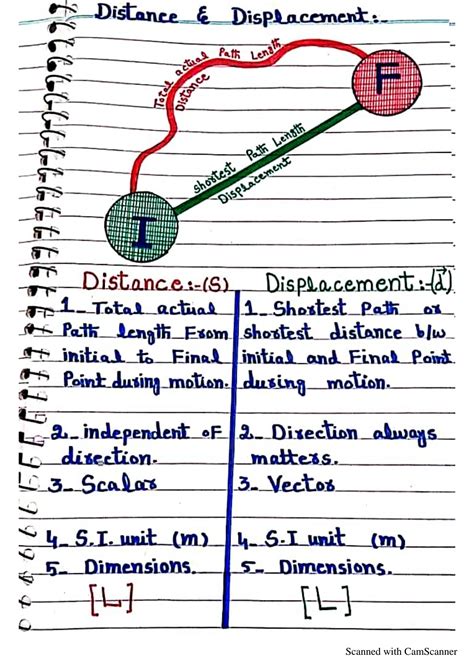 Distance & Displacement:-
Total actual Path Length
Distance
F
Shortest Path Length
Displacement
I
Distance:-(S)
1- Total actual
Path length From
initial to Final
Point during motion.
2- independent oF
direction.
3- Scalar
4- S.I. unit (m)
5- Dimensions.
[L]
Displacement:-(d⃗)
1- Shortest Path or
shortest distance b/w
initial and Final Point
during motion.
2- Direction always
matters.
3- Vector
4- S.I unit (m)
5- Dimensions.
[L]
Scanned with CamScanner